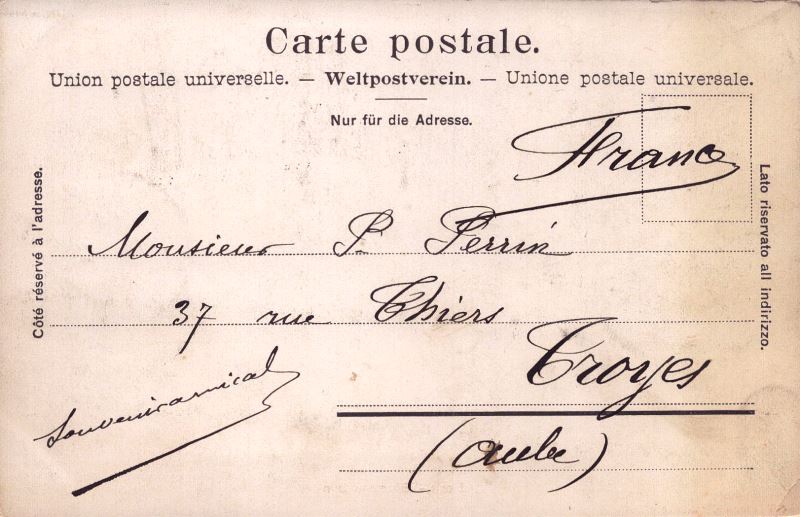 Carte postale.
Union postale universelle. — Weltpostverein. — Unione postale universale.
Nur für die Adresse.
France
Côté réservé à l'adresse.
Lato riservato all indirizzo.
Monsieur P. Perrin
37 rue Thiers
Troyes
(Aube)
Souvenir amical